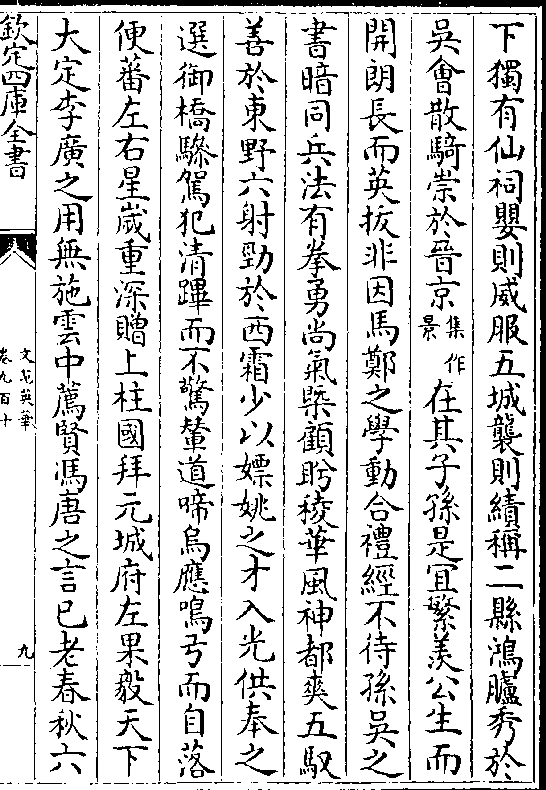 下獨有仙祠嬰則威服五城襲則績稱二縣鴻臚秀於
吳會散騎崇於晉京集作景在其子孫是宜繁羨公生而
開朗長而英拔非因馬鄭之學動合禮經不待孫吳之
書暗同兵法有拳勇尚氣槩顧盻稜華風神都爽五馭
善於東野六射勁於西霜少以嫖姚之才入光供奉之
選御橋驂駕犯清蹕而不驚輦道啼烏應鳴弓而自落
便蕃左右星歳重深贈上柱國拜元城府左果毅天下
大定李廣之用無施雲中薦賢馮唐之言已老春秋六
欽定四庫全書
文苑英華
卷九百十
九